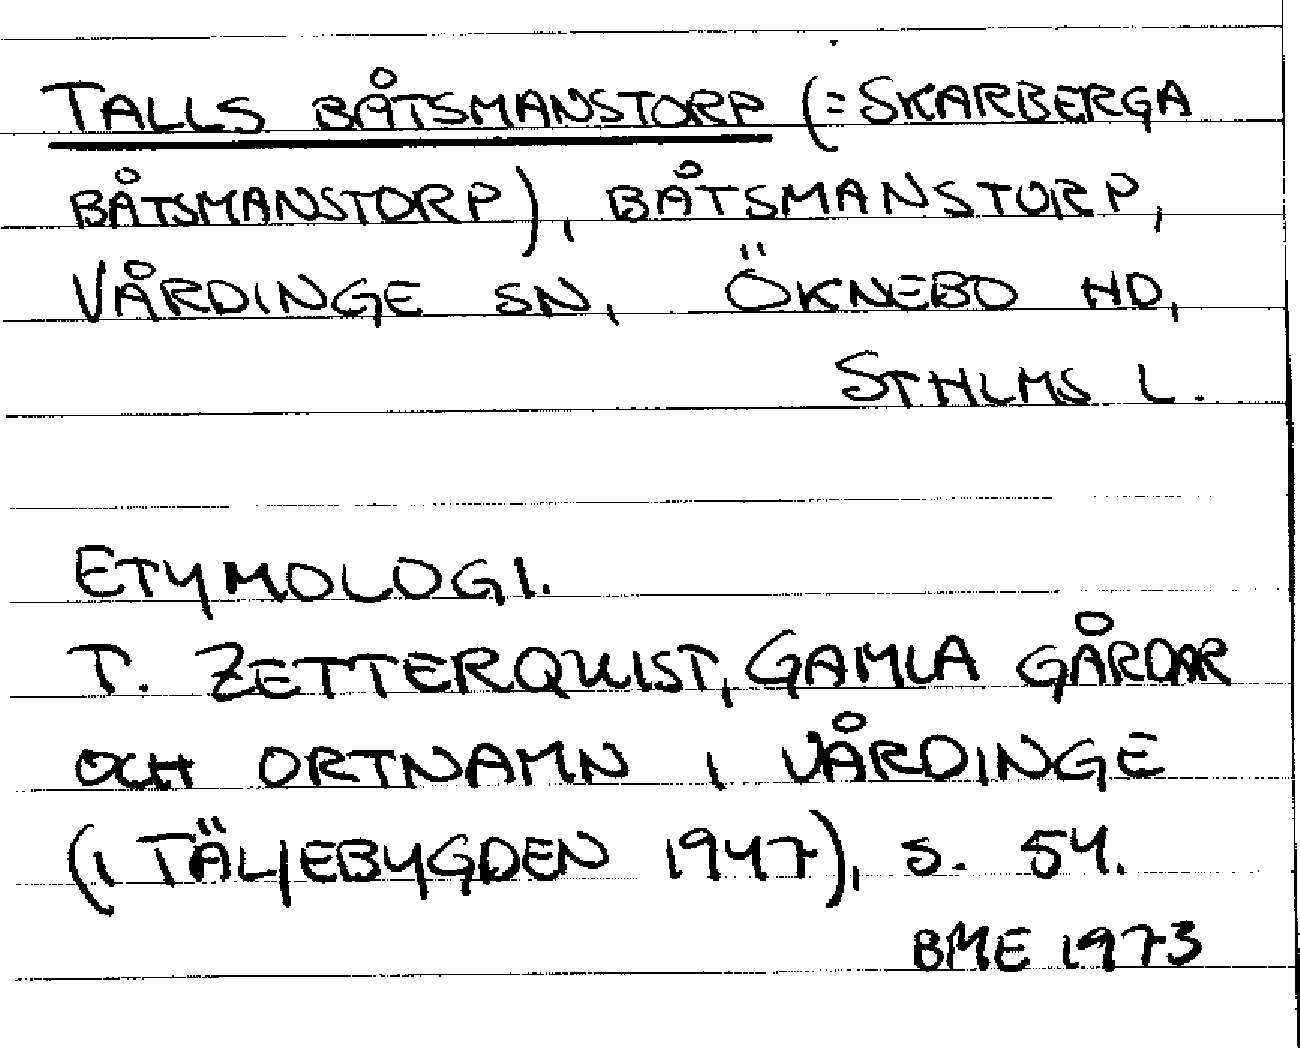 TALLS BÅTSMANSTORP (= SKARBERGA
BÅTSMANSTORP), BÅTSMANSTORP,
VÅRDINGE SN, ÖKNEBO HD,
STHLMS L.
ETYMOLOGI.
T. ZETTERQUIST, GAMLA GÅRDAR
OCH ORTNAMN I VÅRDINGE
(I TÄLJEBYGDEN 1947), S. 54.
BME 1973